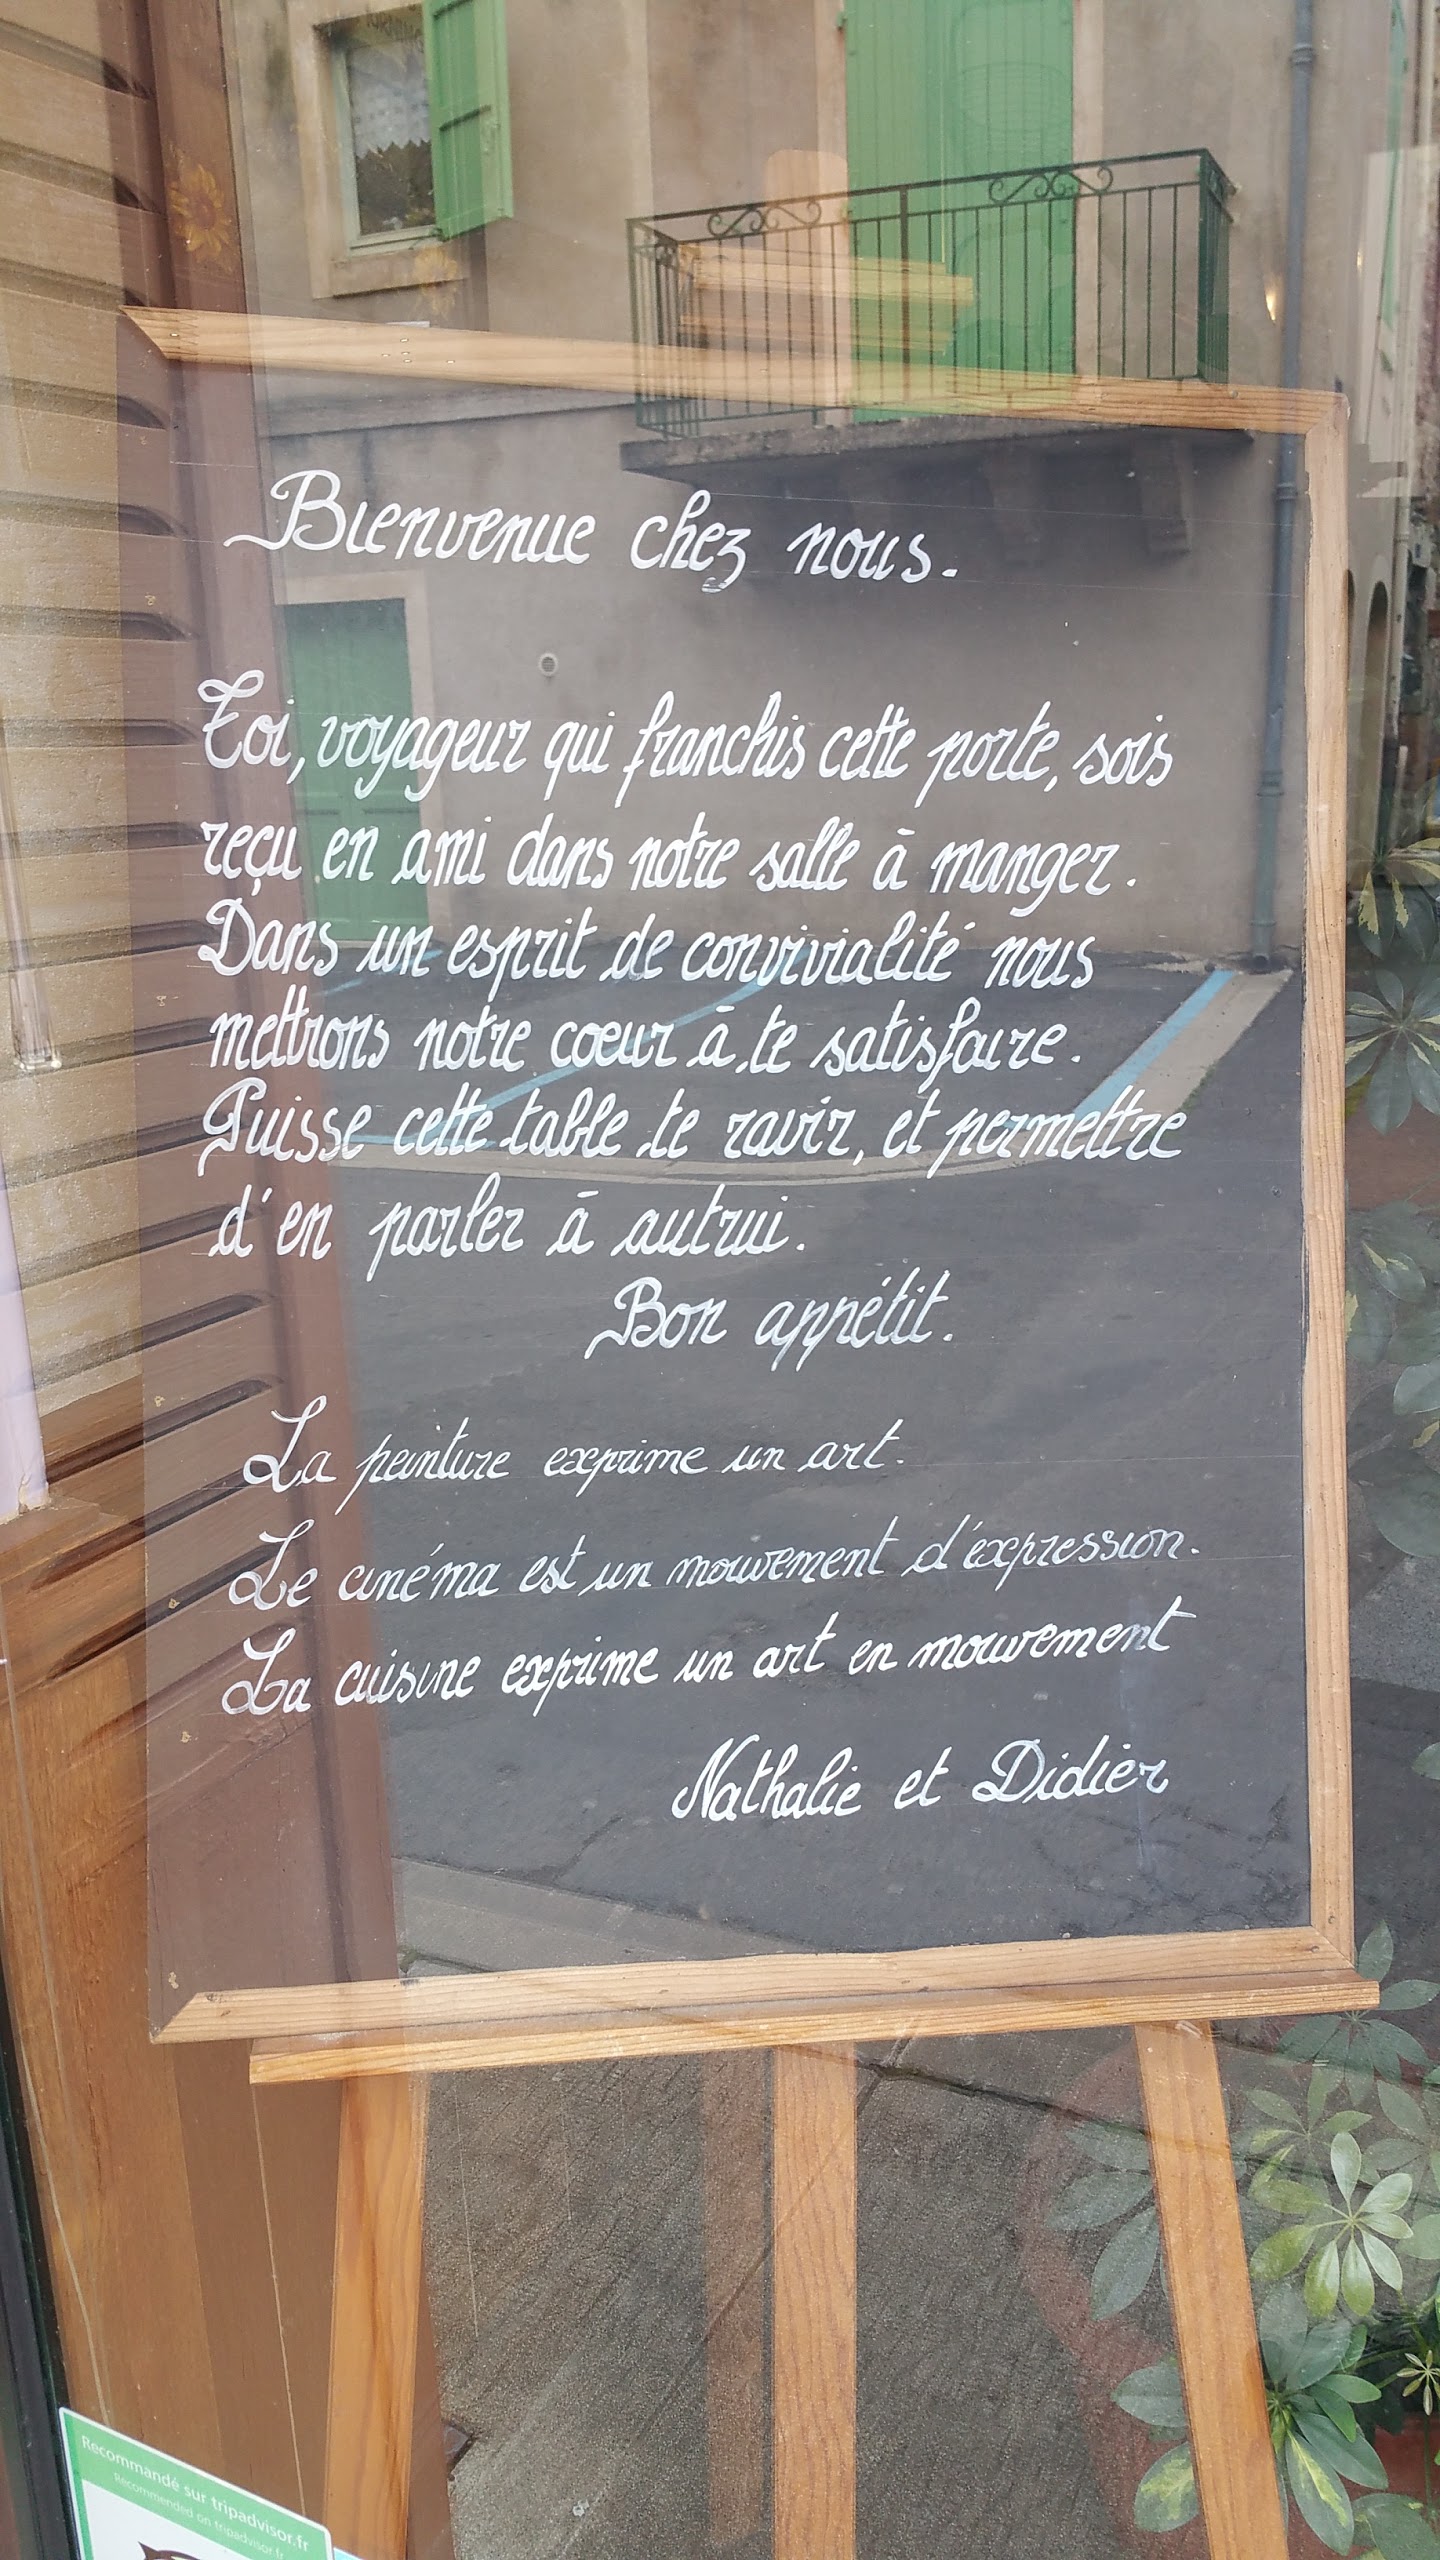 Bienvenue chez nous.
Toi, voyageur qui franchis cette porte, sois
reçu en ami dans notre salle à manger.
Dans un esprit de convivialité nous
mettrons notre cœur à te satisfaire.
Puisse cette table te ravir, et permettre
d'en parler à autrui.
Bon appétit.
La peinture exprime un art.
Le cinéma est un mouvement d'expression.
La cuisine exprime un art en mouvement
Nathalie et Didier
Recommandé sur tripadvisor.fr
Recommended on tripadvisor.fr